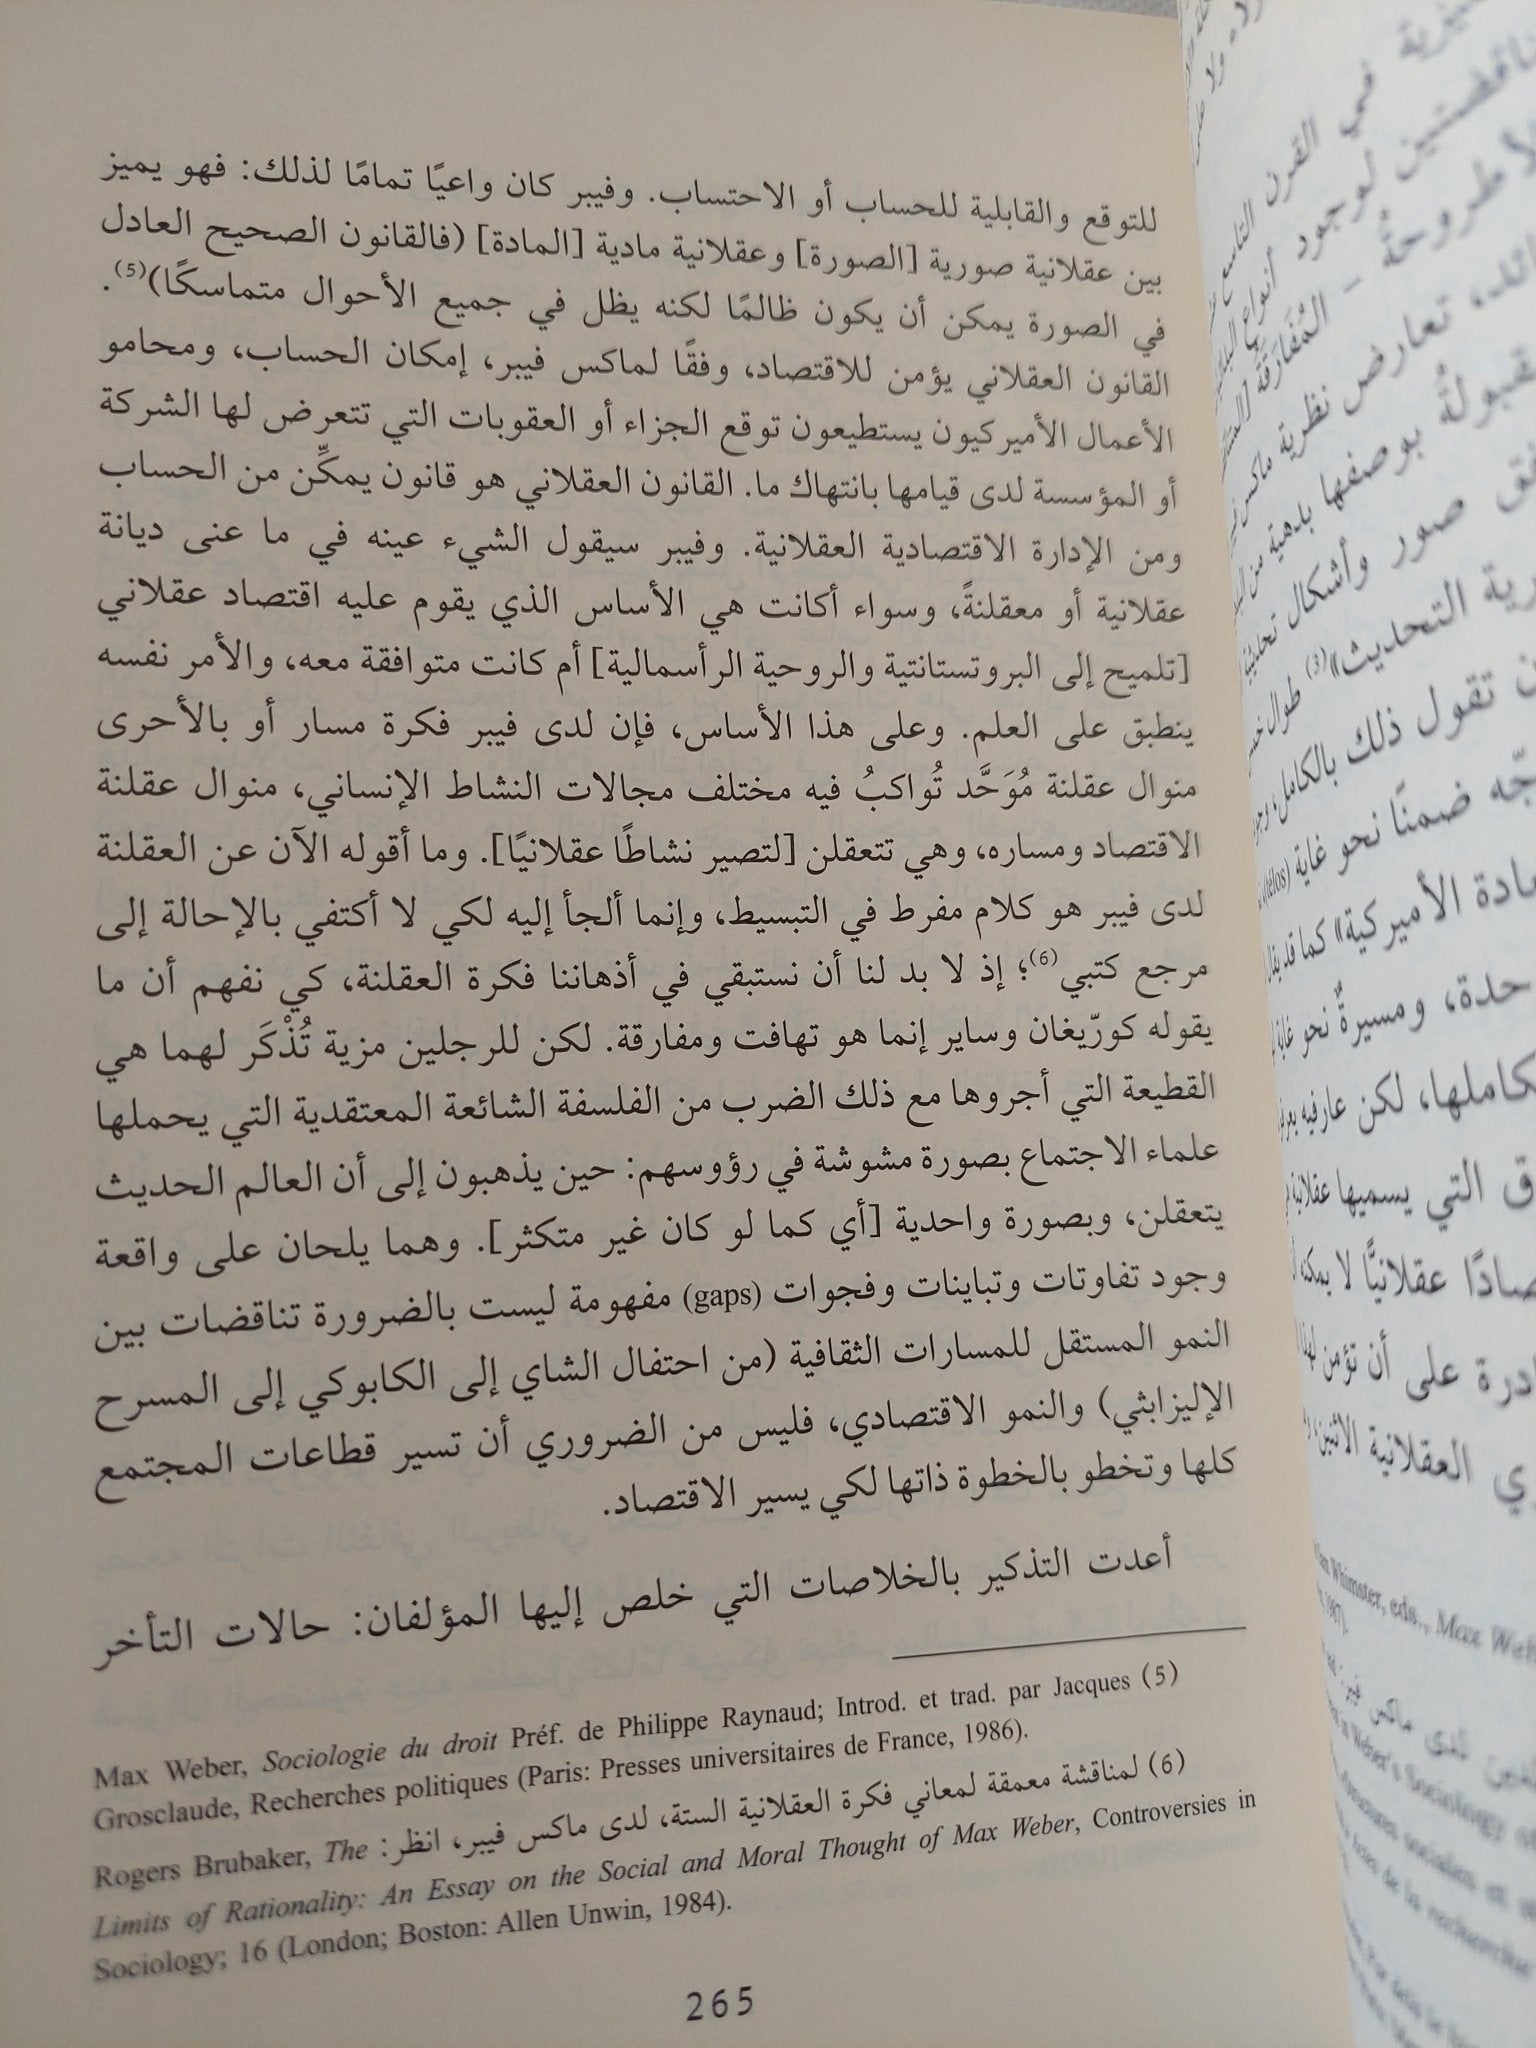 للتوقع والقابلية للحساب أو الاحتساب. وفيبر كان واعيًا تمامًا لذلك: فهو يميز
بين عقلانية صورية [الصورة] وعقلانية مادية [المادة] (فالقانون الصحيح العادل
في الصورة يمكن أن يكون ظالمًا لكنه يظل في جميع الأحوال متماسكًا)(5).
القانون العقلاني يؤمن للاقتصاد، وفقًا لماكس فيبر، إمكان الحساب، ومحامو
الأعمال الأميركيون يستطيعون توقع الجزاء أو العقوبات التي تتعرض لها الشركة
أو المؤسسة لدى قيامها بانتهاك ما. القانون العقلاني هو قانون يمكِّن من الحساب
ومن الإدارة الاقتصادية العقلانية. وفيبر سيقول الشيء عينه في ما عنى ديانة
عقلانية أو معقلنةً، وسواء أكانت هي الأساس الذي يقوم عليه اقتصاد عقلاني
[تلميح إلى البروتستانتية والروحية الرأسمالية] أم كانت متوافقة معه، والأمر نفسه
ينطبق على العلم. وعلى هذا الأساس، فإن لدى فيبر فكرة مسار أو بالأحرى
منوال عقلنة مُوَحَّد تُواكبُ فيه مختلف مجالات النشاط الإنساني، منوال عقلنة
الاقتصاد ومساره، وهي تتعقلن [لتصير نشاطًا عقلانيًا]. وما أقوله الآن عن العقلنة
لدى فيبر هو كلام مفرط في التبسيط، وإنما ألجأ إليه لكي لا أكتفي بالإحالة إلى
مرجع كتبي(6)؛ إذ لا بد لنا أن نستبقي في أذهاننا فكرة العقلنة، كي نفهم أن ما
يقوله كورّيغان وساير إنما هو تهافت ومفارقة. لكن للرجلين مزية تُذْكَر لهما هي
القطيعة التي أجروها مع ذلك الضرب من الفلسفة الشائعة المعتقدية التي يحملها
علماء الاجتماع بصورة مشوشة في رؤوسهم: حين يذهبون إلى أن العالم الحديث
يتعقلن، وبصورة واحدية [أي كما لو كان غير متكثر]. وهما يلحان على واقعة
وجود تفاوتات وتباينات وفجوات (gaps) مفهومة ليست بالضرورة تناقضات بين
النمو المستقل للمسارات الثقافية (من احتفال الشاي إلى الكابوكي إلى المسرح
الإليزابثي) والنمو الاقتصادي، فليس من الضروري أن تسير قطاعات المجتمع
كلها وتخطو بالخطوة ذاتها لكي يسير الاقتصاد.
أعدت التذكير بالخلاصات التي خلص إليها المؤلفان: حالات التأخر
Max Weber, Sociologie du droit Préf. de Philippe Raynaud; Introd. et trad. par Jacques (5)
Grosclaude, Recherches politiques (Paris: Presses universitaires de France, 1986).
(6) لمناقشة معمقة لمعاني فكرة العقلانية الستة، لدى ماكس فيبر، انظر: Rogers Brubaker, The
Limits of Rationality: An Essay on the Social and Moral Thought of Max Weber, Controversies in
Sociology; 16 (London; Boston: Allen Unwin, 1984).
265
في القرن التاسع
لوجود أنواع
تعارض نظرية ماكس
بوصفها بدهية من
صور وأشكال
التحديث»(3) طوال
تقول ذلك بالكامل،
ضمنًا نحو غاية (télos)
الأميركية» كما قد يقال
ومسيرةٌ نحو غاية
لكن عارفيه
التي يسميها عقلانية
عقلانيًّا لا يمكنه
على أن تؤمن لهذا
العقلانية الاثنين
Whimster, eds., Max
لدى ماكس فيبر
Weber's Sociology
sociales et
de la recherche